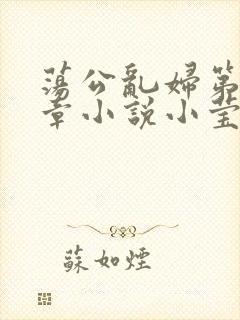 蕩公亂婦第
章小説小莹
蘇如煙